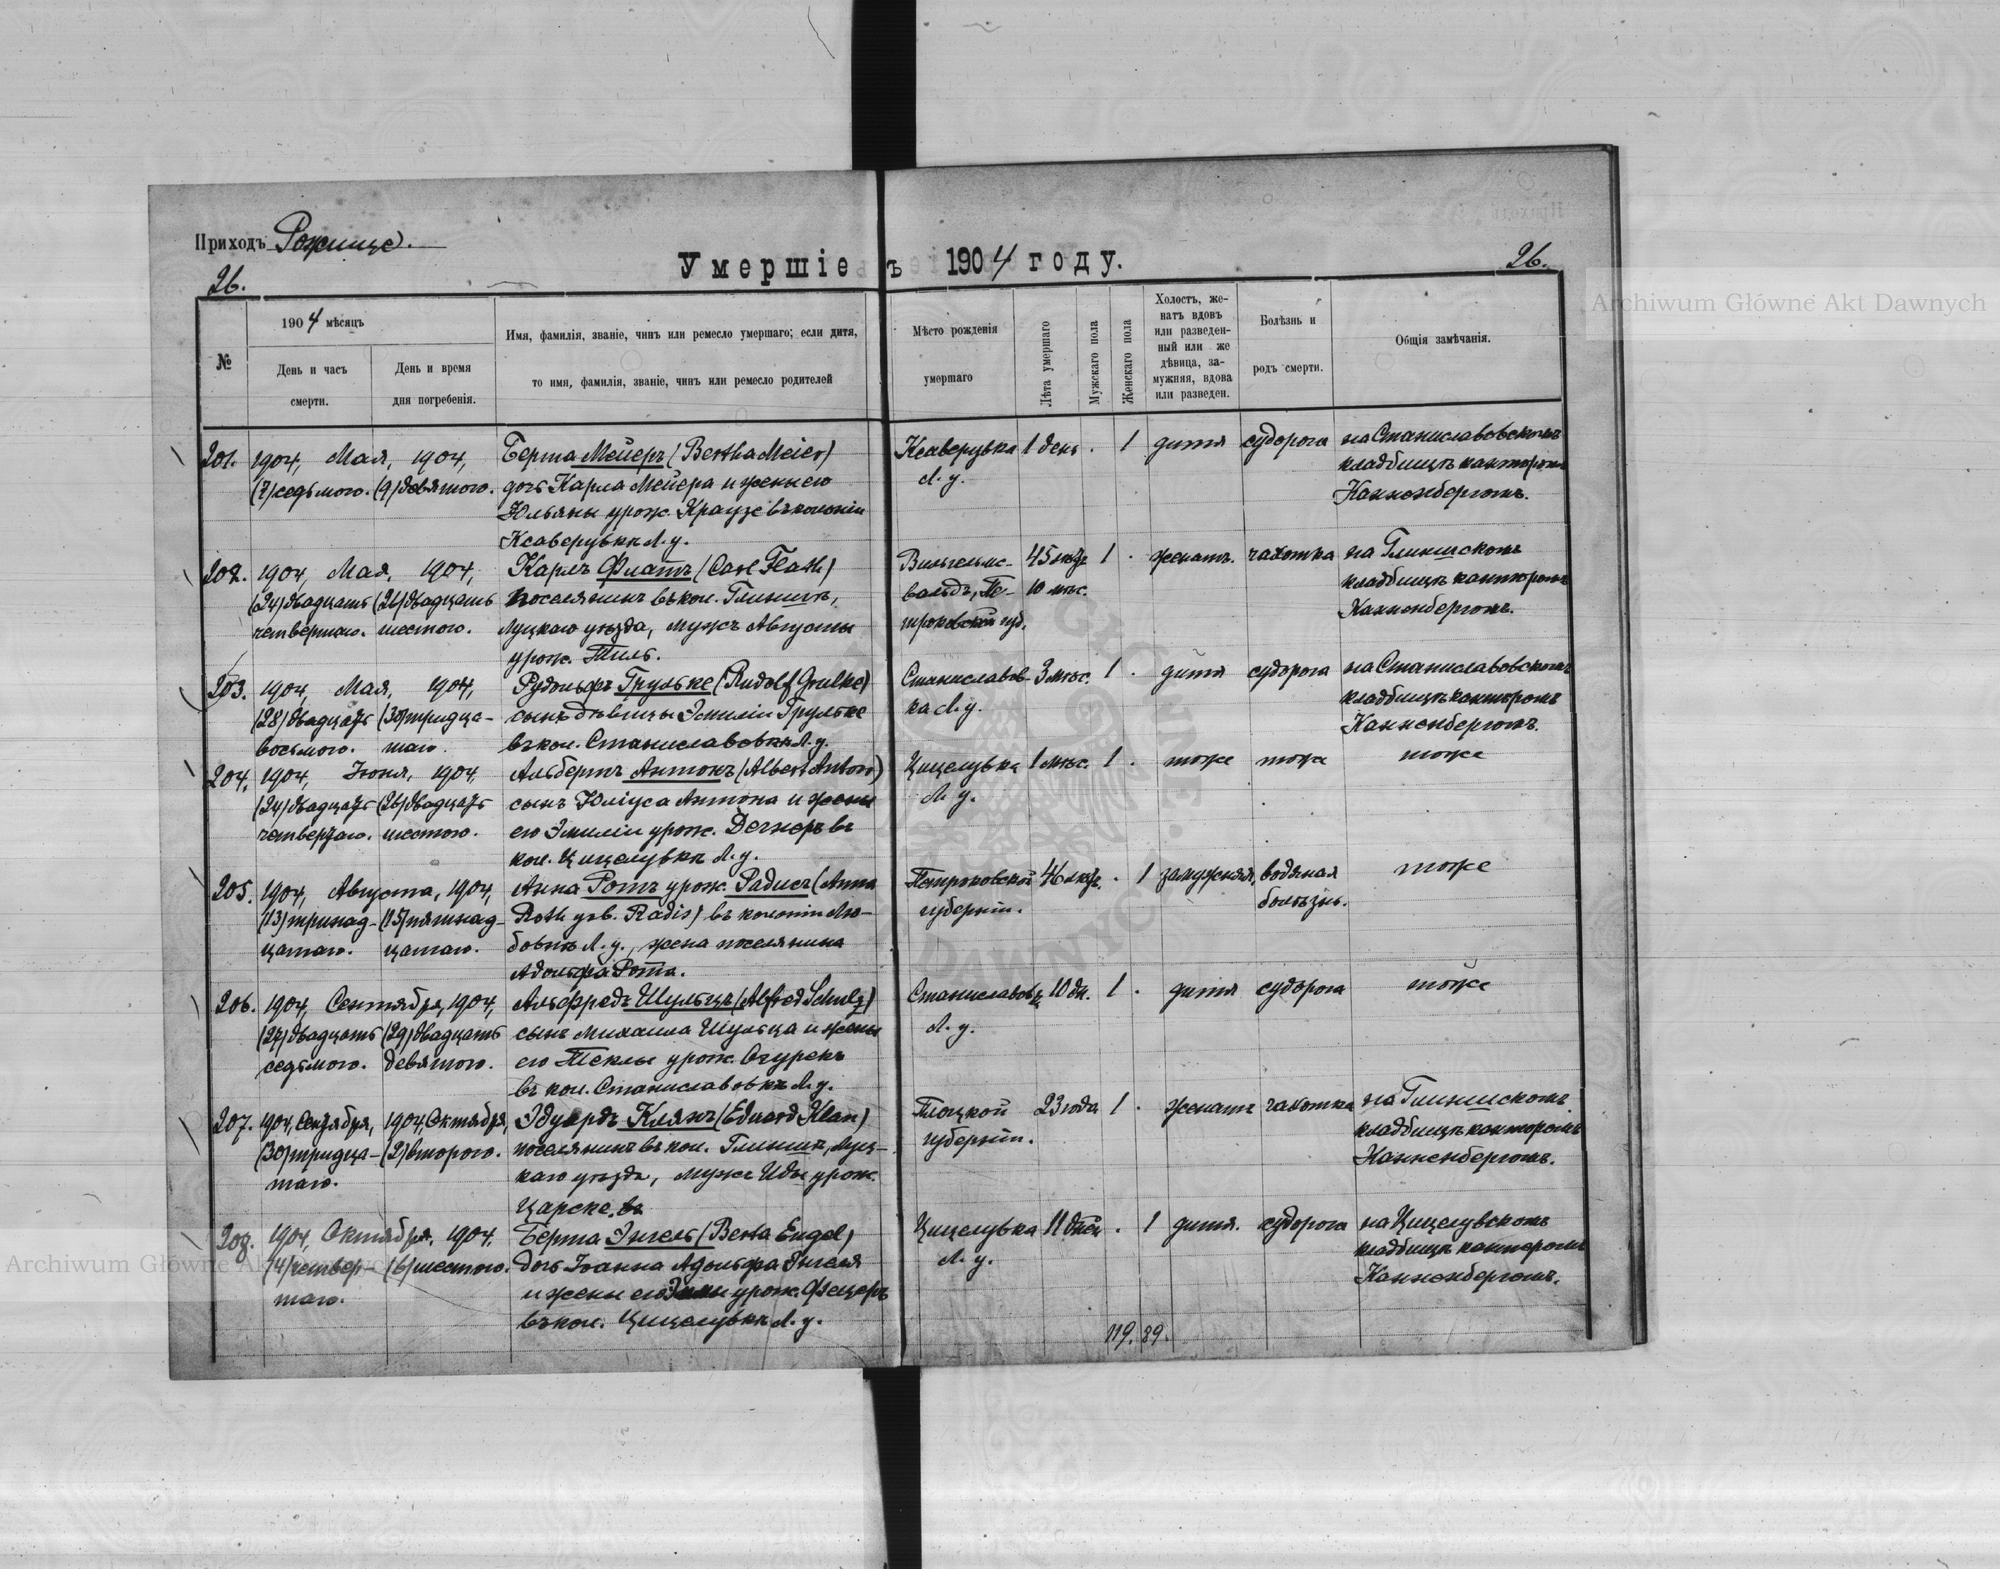 Приходъ Рожище.
26.
26.
Умершіе въ 1904 году.
№
1904 мѣсяцъ
День и часъ
смерти.
День и время
дня погребенія.
Имя, фамилія, званіе, чинъ или ремесло умершаго; если дитя,
то имя, фамилія, званіе, чинъ или ремесло родителей
Мѣсто рожденія
умершаго
Лѣта умершаго
Мужскаго пола
Женскаго пола
Холостъ, же-
натъ вдовъ
или разведен-
ный или же
дѣвица, за-
мужняя, вдова
или разведен.
Болѣзнь и
родъ смерти.
Общія замѣчанія.
201.
1904, Мая, 1904,
(7) седьмого. (9) девятого.
Берта Мейеръ (Bertha Meier)
дочь Карла Мейера и жены его
Юльяны урож. Краузе въ колоніи
Ксаверувкѣ Л. у.
Ксаверувка
Л. у.
1 день . 1 дитя судорога
на Станиславовскомъ
кладбищѣ канторомъ
Канненбергомъ.
202.
1904, Мая, 1904,
(24) двадцать (26) двадцать
четвертаго. шестого.
Карлъ Флатъ (Carl Flath)
поселянинъ въ кол. Глинищѣ,
Луцкаго уѣзда, мужъ Августы
урож. Тиль.
Вильгельмс-
вальдъ, Пе-
троковской губ.
45 лѣтъ 1 . женатъ. чахотка
10 мѣс.
на Глинискомъ
кладбищѣ канторомъ
Канненбергомъ.
203.
1904, Мая, 1904,
(28) двадцать (30) тридца-
восьмого. таго.
Рудольфъ Грульке (Rudolf Grulke)
сынъ дѣвицы Эмиліи Грульке
въ кол. Станиславовкѣ Л. у.
Станиславов-
ка Л. у.
3 мѣс. 1 . дитя судорога
на Станиславовскомъ
кладбищѣ канторомъ
Канненбергомъ.
204.
1904, Іюня, 1904
(24) двадцать (26) двадцать
четвертаго. шестого.
Альбертъ Антонъ (Albert Anton)
сынъ Юліуса Антона и жены
его Эмиліи урож. Дегнеръ въ
кол. Цицелувкѣ Л. у.
Цицелувка
Л. у.
1 мѣс. 1 . тоже тоже тоже
205.
1904, Августа, 1904,
(13) тринад- (15) пятнад-
цатаго. цатаго.
Анна Ротъ урож. Радисъ (Anna
Roth geb. Radis) въ колоніи Лю-
бовкѣ Л. у., жена поселянина
Адольфа Рота.
Петроковской
губерніи.
46 лѣтъ. . 1 замужняя, водяная
болѣзнь.
тоже
206.
1904, Сентября, 1904,
(27) двадцать (29) двадцать
седьмого. девятого.
Альфредъ Шульцъ (Alfred Schulz)
сынъ Михаила Шульца и жены
его Теклы урож. Огурекъ
въ кол. Станиславовкѣ Л. у.
Л. у.
10 дн. 1 . дитя судорога тоже
207.
1904, Сентября, 1904, Октября,
(30) тридца- (2) второго.
таго.
Эдуардъ Клянъ (Eduard Klan)
поселянинъ въ кол. Глинищѣ, Луц-
каго уѣзда, мужъ Иды урож.
Царске.
Плоцкой
губерніи.
23 года 1 . женатъ чахотка
на Глинискомъ
кладбищѣ канторомъ
Канненбергомъ.
208.
1904, Октября, 1904.
(4) четвер- (6) шестого.
таго.
Берта Энгель (Berta Engel)
дочь Іоанна Адольфа Энгеля
и жены его урож. Фецеръ
въ кол. Цицелувкѣ Л. у.
Цицелувка
Л. у.
11 дней . 1 дитя. судорога
на Цицелувскомъ
кладбищѣ канторомъ
Канненбергомъ.
119. 89.
Archiwum Główne Akt Dawnych
Archiwum Główne Akt Dawnych